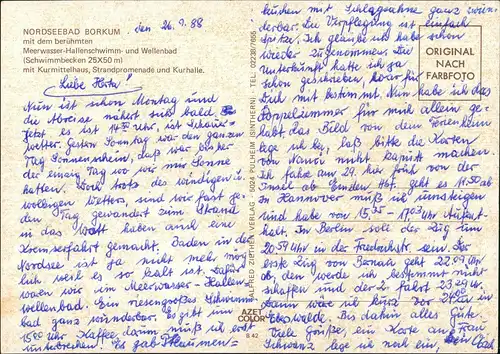 NORDSEEBAD BORKUM
mit dem berühmten
Meerwasser-Hallenschwimm- und Wellenbad
(Schwimmbecken 25X50 m)
mit Kurmittelhaus, Strandpromenade und Kurhalle.
den 26.9.88
Liebe Herta!
Nun ist schon Montag und
die Abreise nähert sich bald.
Jetzt es ist 14 Uhr, ist
wetter. Gestern Sonntag war den ganzen
Tag Sonnenschein, daß war bisher
der einzig Tag wo wir mir Sonne
hatten. Doch trotz des windigen u.
wolkigen Wetters, sind wir fast je-
den Tag gewandert zum Strand
in das Watt haben auch eine
Kremserfahrt gemacht. Baden in der
Nordsee ist ja nicht mehr mög-
lich weil es so kalt ist. Dafür
waren wir im Meerwasser-Hallen
wellenbad. Ein riesengroßes Schwimm-
bad ganz wunderbar. Es gibt um
15 00 Uhr Kaffee darum muß ich erst
unterbrechen. Es gab Pflaumen-
kuchen mit Schlagsahne ganz wun-
derbar. Die Verpflegung ist einfach
Spitze. Ich glaube ich habe schon
wieder zugenommen. Die
Unterkunft hatte ich ja
schon geschrieben, war für
Euch mit bestimmt. Nun habe ich das
Doppelzimmer für mich allein ge-
habt, das Bild von dem Ferienheim
lege ich bei, laß bitte die Karten
von Nanni nicht kaputt machen.
Ich fahre am 29. hier früh von der
Insel ab Emden Hbf. geht es 11.50 ab
In Hannover muß ich umsteigen
und habe von 15,35 - 17,03 Uhr Aufent-
halt. In Berlin soll der Zug um
20 59 Uhr in der Friedrichstr. sein. Der
erste Zug von Bernau geht 22.09 Uhr
ab den werde ich bestimmt nicht
schaffen und der 2. fährt 23 29 Uhr
dann wäre ich kurz vor 24 Uhr in
Eberswalde. Bis dahin alles Gute.
Viele Grüße, eine Karte an Frau
Schwanz lege ich noch ein,
ORIGINAL
NACH
FARBFOTO
ALFRED ZIETHEN VERLAG, 5024 PULHEIM (SINTHERN) TEL. 02238/1605
AZET
COLOR
B 42